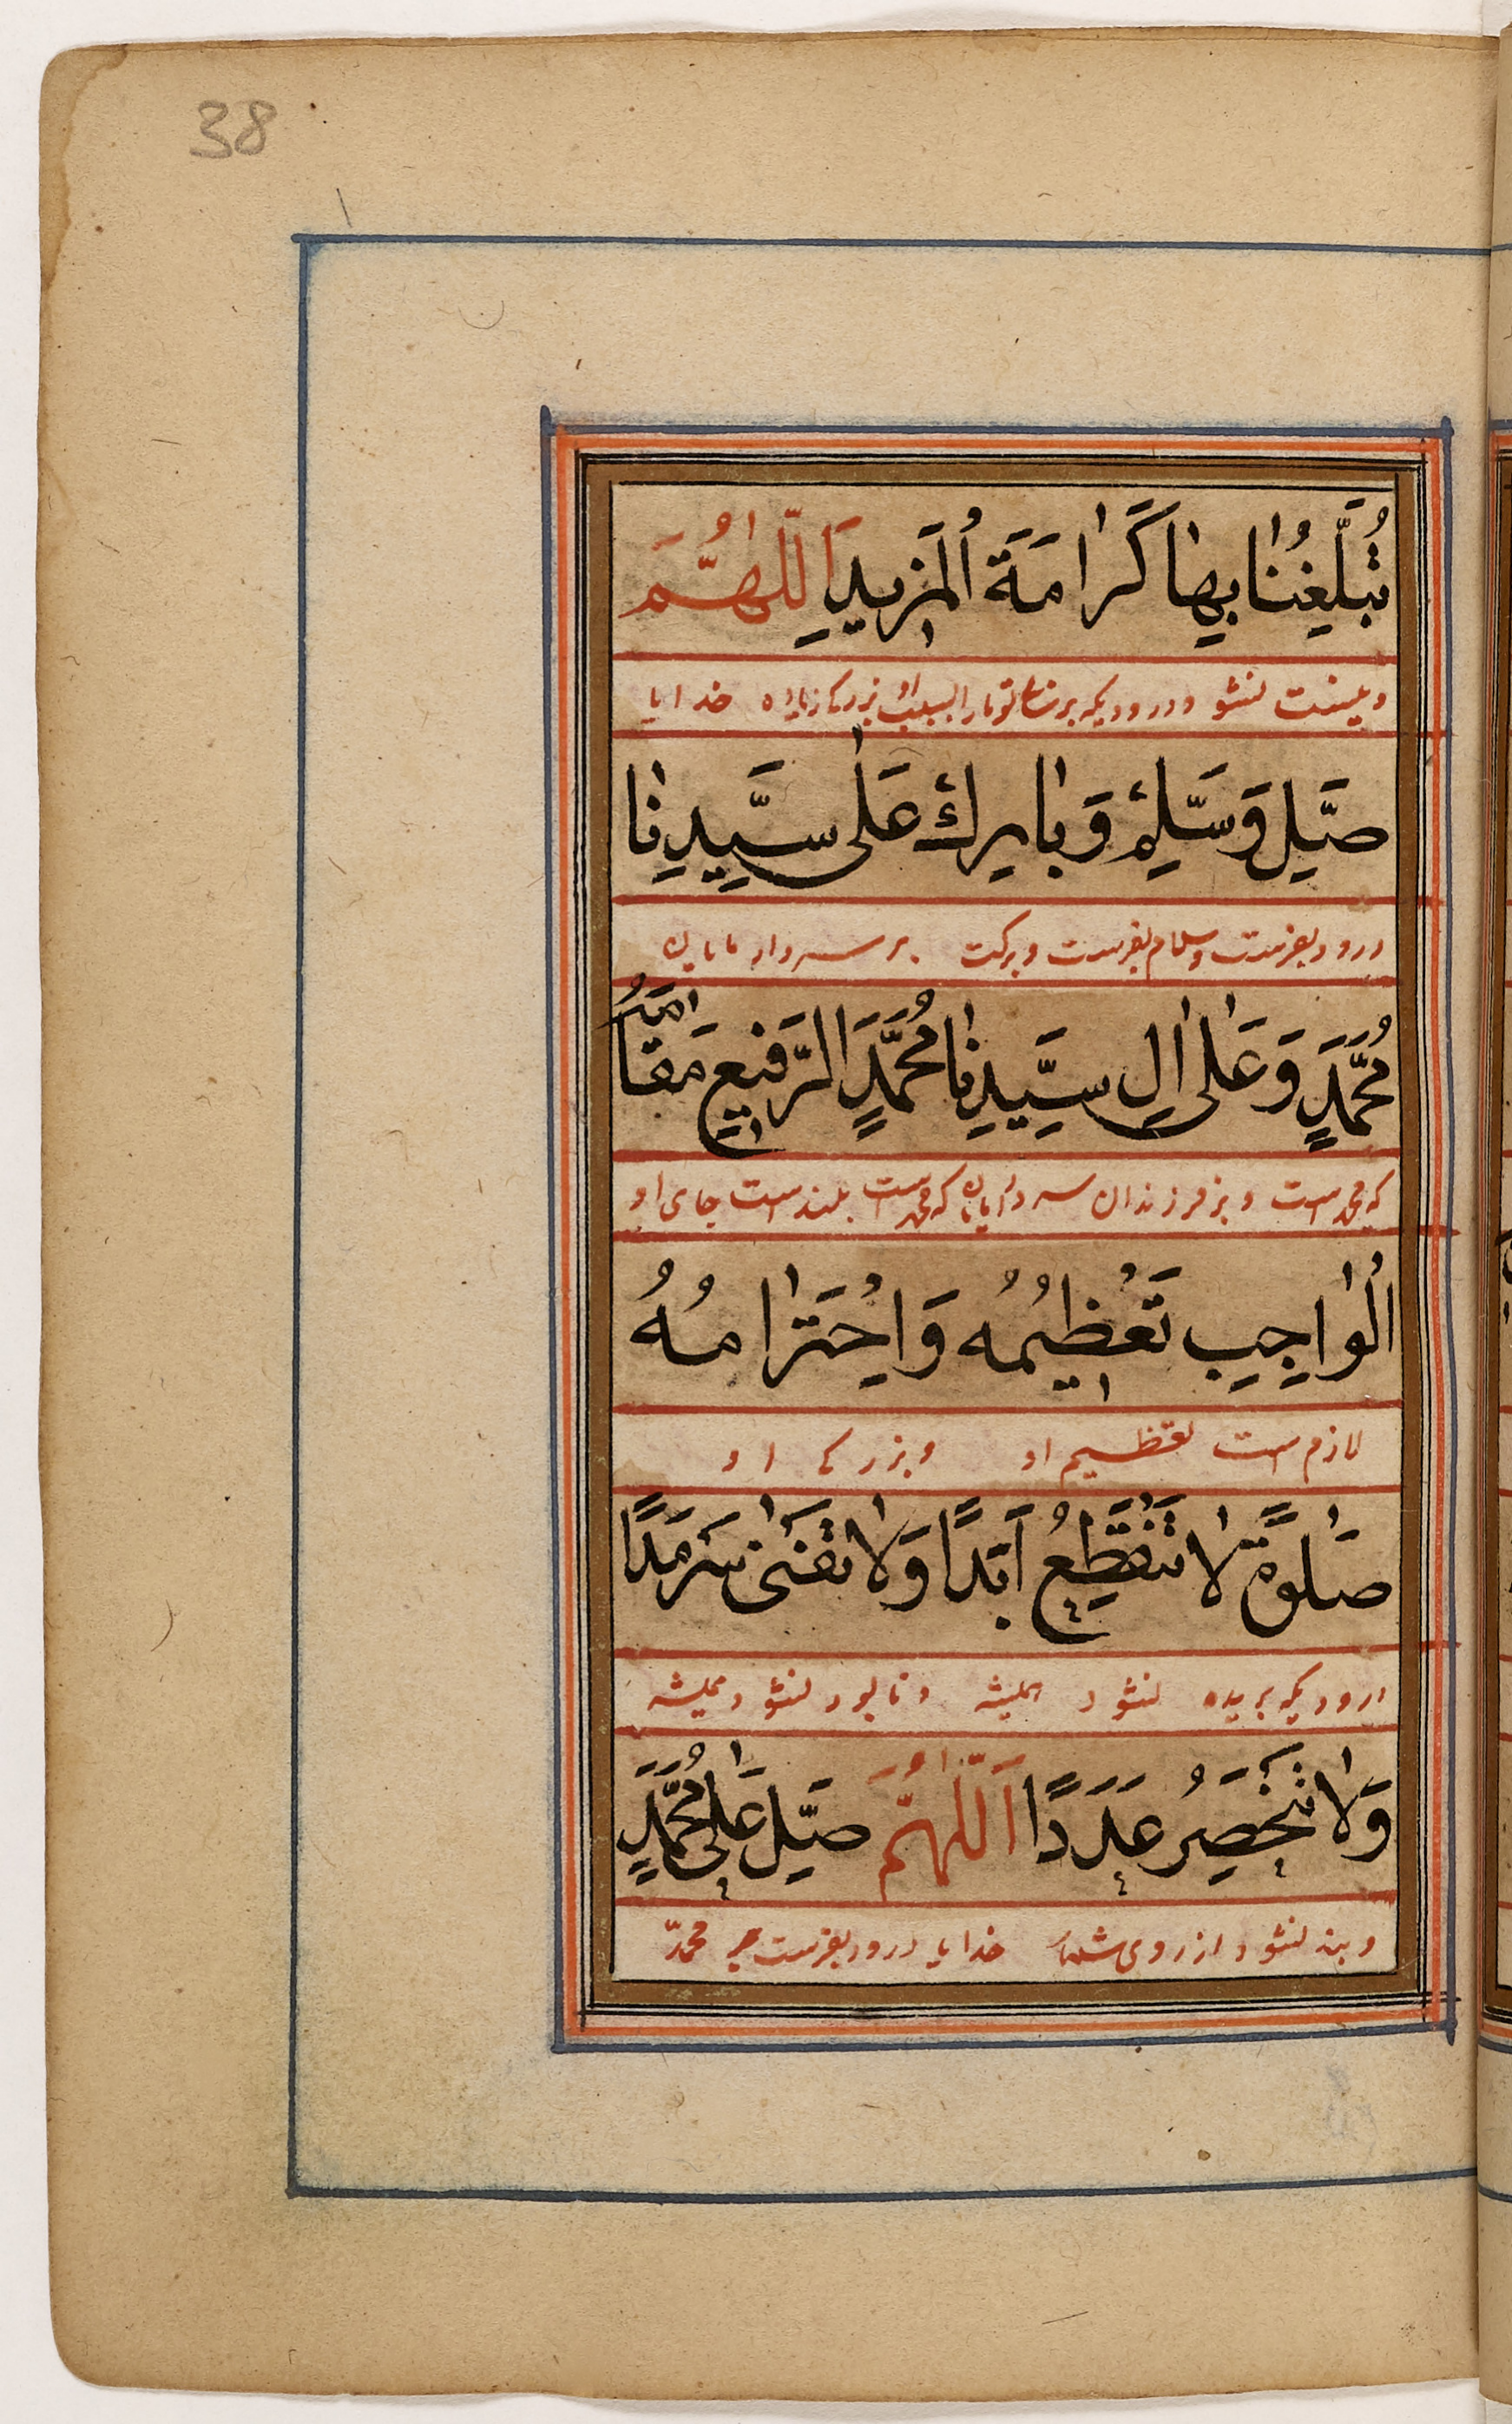 38
تُبَلِّغُنَا بِهَا كَرَامَةَ الْمَزِيدِ اَللّٰهُمَّ
خدایا
صَلِّ وَسَلِّمْ وَبَارِكْ عَلٰى سَيِّدِنَا
درود بفرست وسلام بفرست و برکت بر سردار مایان
مُحَمَّدٍ وَعَلٰى اٰلِ سَيِّدِنَا مُحَمَّدٍ الرَّفِيعِ مَقَامُهُ
که محمد است و بر فرزندان سردار مایان که محمد است بلند است جای او
الْوَاجِبِ تَعْظِيمُهُ وَاحْتِرَامُهُ
لازم است تعظیم او و بزرگی او
صَلٰوةً لَا تَنْقَطِعُ اَبَدًا وَلَا تَفْنٰى سَرْمَدًا
درودیکه بریده نشود همیشه و نابود نشود همیشه
وَلَا تَنْحَصِرُ عَدَدًا اَللّٰهُمَّ صَلِّ عَلٰى مُحَمَّدٍ
و بند نشود از روی شمار خدایا درود بفرست بر محمدّ